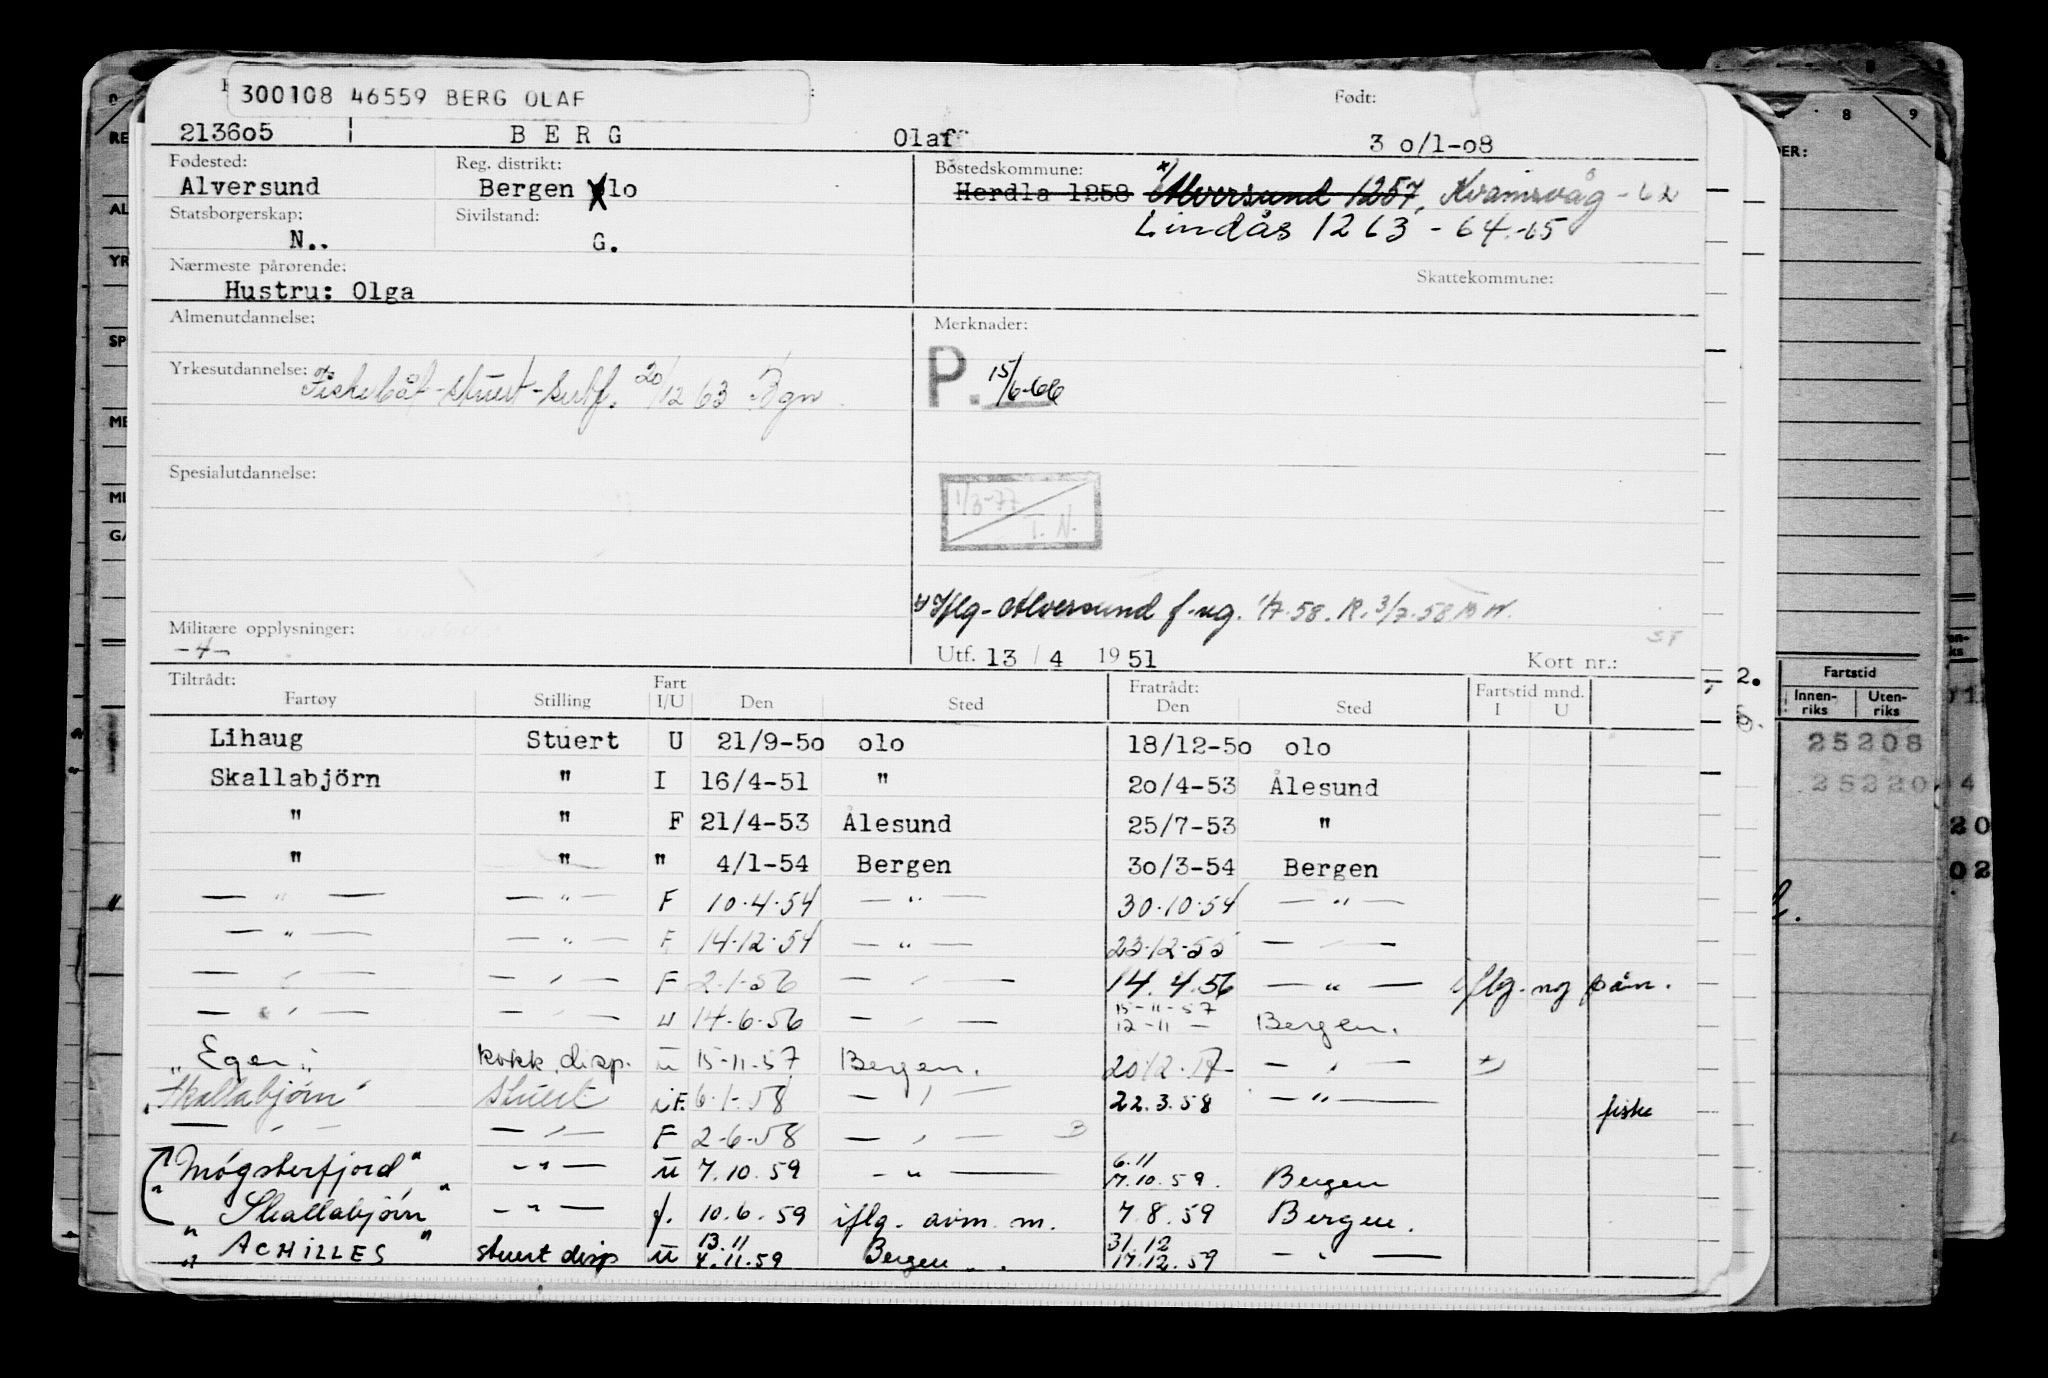 300108 46559 BERG OLAF
Født:
213605 BERG Olaf 30/1-08
Fødested: Reg. distrikt: Bostedskommune:
Alversund Bergen olo Herdla 1258 x) Alversund 1257, Kvamsvåg - 62
Statsborgerskap: Sivilstand: Lindås 1263 - 64.-65
N.. G.
Nærmeste pårørende: Skattekommune:
Hustru: Olga
Almenutdannelse: Merknader:
Yrkesutdannelse: Fiskebåt-stuert-sertf. 20/12 63 Bgn P. 15/6-66
Spesialutdannelse:
1/3-77
T. N.
x) Iflg. Alversund f.reg. 1/7.58. R. 3/7.58
Militære opplysninger:
-4-
Utf. 13 / 4 1951 Kort nr.:
Tiltrådt: Fratrådt:
Fartøy Stilling Fart I/U Den Sted Den Sted Fartstid mnd. I U
Lihaug Stuert U 21/9-50 olo 18/12-50 olo
Skallabjörn " I 16/4-51 " 20/4-53 Ålesund
" " F 21/4-53 Ålesund 25/7-53 "
" " " 4/1-54 Bergen 30/3-54 Bergen
— " — — " — F 10.4.54 — " — 30.10.54 — " —
— " — — " — F 14.12.54 — " — 23.12.55 — " —
— " — — " — F 2.1.56 — " — 14.4.56 — " — iflg. ny påm.
— " — — " — U 14.6.56 — " — 15-11-57 12-11 — Bergen.
"Eger" kokk disp. U 15-11-57 Bergen. 20.12.57 — " —
"Skallabjørn" Stuert F. 6.1.58 — " — 22.3.58 — " — fiske
— " — — " — F 2-6-58 — " —
"Møgsterfjord" — " — U 7.10.59 — " — 6.11 17.10.59. Bergen
"Skallabjørn" — " — f. 10.6.59 iflg. avm. m. 7.8.59 Bergen.
"ACHILLES" stuert disp U 13.11 4.11.59 Bergen 31.12 17.12.59 — " —
Fartstid
Innenriks Utenriks
25208
25220